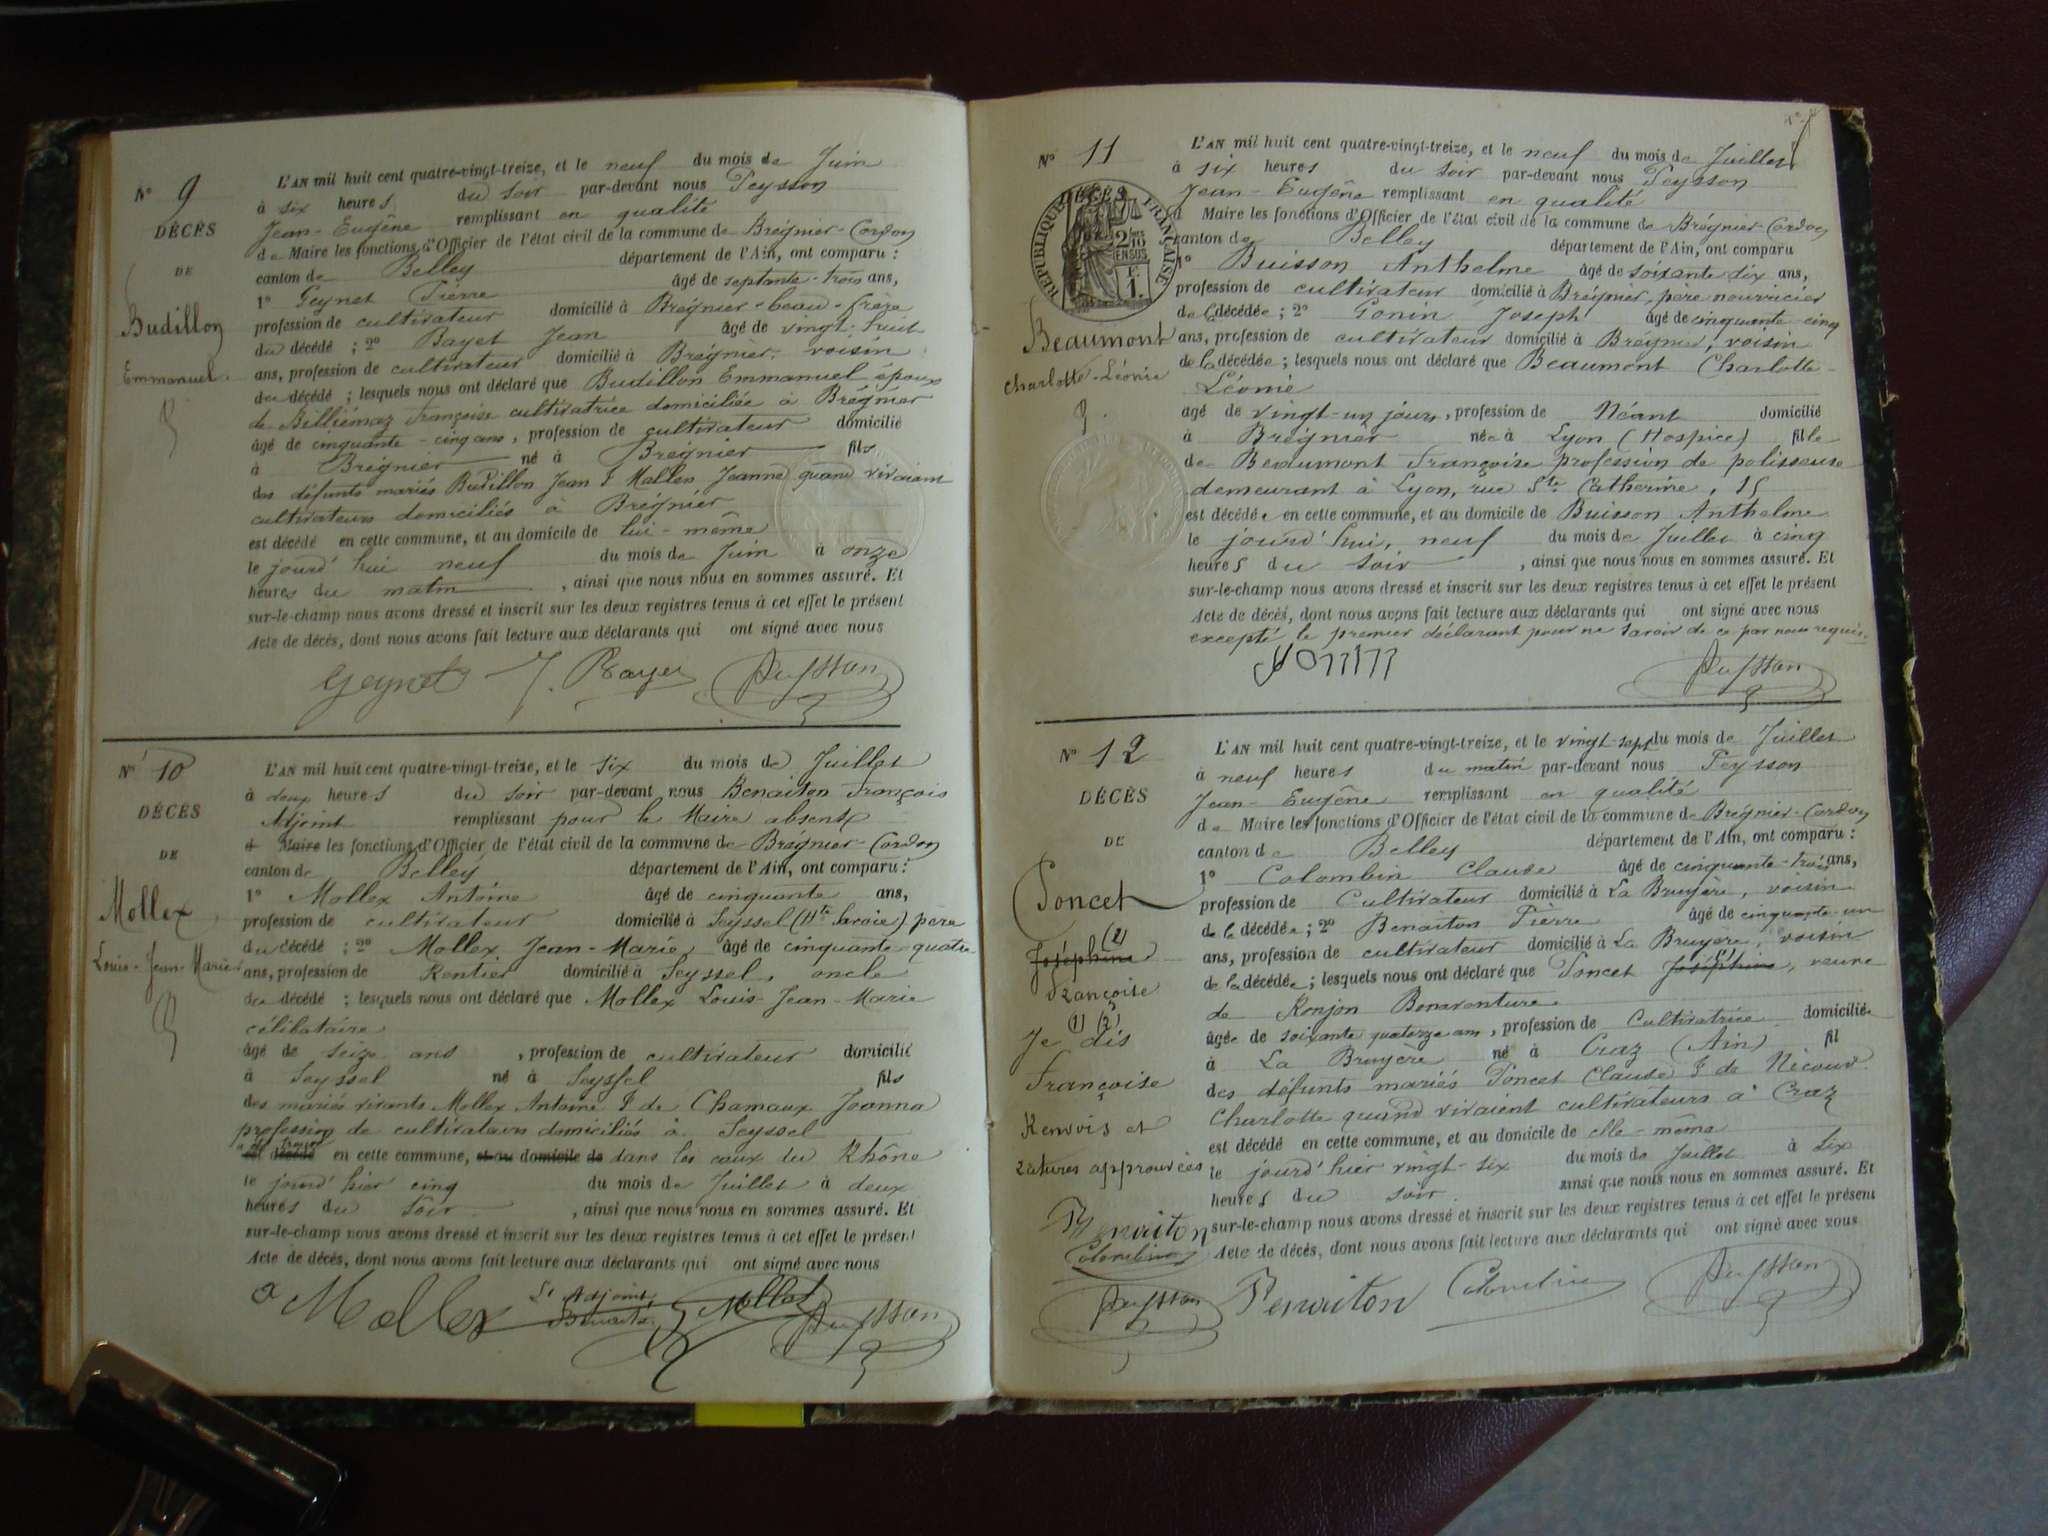 N° 9
DÉCÈS
DE
Budillon
Emmanuel
L'AN mil huit cent quatre-vingt-treize, et le neuf du mois de Juin
à six heures du soir par-devant nous Peysson
Jean-Eugêne remplissant en qualité
de Maire les fonctions d'Officier de l'état civil de la commune de Brégnier-Cordon
canton de Belley département de l'Ain, ont comparu :
1° Geynet Pierre âgé de septante-trois ans,
profession de cultivateur domicilié à Brégnier beau-frère
du décédé ; 2° Bayet Jean âgé de vingt-huit
ans, profession de cultivateur domicilié à Brégnier, voisin
du décédé ; lesquels nous ont déclaré que Budillon Emmanuel époux
de Billiémaz Françoise cultivatrice domiciliée à Brégnier
âgé de cinquante-cinq ans, profession de cultivateur domicilié
à Brégnier né à Brégnier fils
des défunts mariés Budillon Jean & Mollex Jeanne quand vivaient
cultivateurs domiciliés à Brégnier
est décédé en cette commune, et au domicile de lui-même
le jourd'hui neuf du mois de Juin à onze
heures du matin, ainsi que nous nous en sommes assuré. Et
sur-le-champ nous avons dressé et inscrit sur les deux registres tenus à cet effet le présent
Acte de décès, dont nous avons fait lecture aux déclarants qui ont signé avec nous
Geynet J. Bayet Peysson
N° 10
DÉCÈS
DE
Mollex
Louis-Jean-Marie
L'AN mil huit cent quatre-vingt-treize, et le six du mois de Juillet
à deux heures du soir par-devant nous Benaiton François
Adjoint remplissant pour le Maire absent
d Maire les fonctions d'Officier de l'état civil de la commune de Brégnier-Cordon
canton de Belley département de l'Ain, ont comparu :
1° Mollex Antoine âgé de cinquante ans,
profession de cultivateur domicilié à Seyssel (Hte Savoie) père
du décédé ; 2° Mollex Jean-Marie âgé de cinquante-quatre
ans, profession de Rentier domicilié à Seyssel, oncle
du décédé ; lesquels nous ont déclaré que Mollex Louis-Jean-Marie
célibataire
âgé de seize ans, profession de cultivateur domicilié
à Seyssel né à Seyssel fils
des mariés vivants Mollex Antoine & de Chamaux Joanna
profession de cultivateurs domiciliés à Seyssel
a été trouvé
est décédé en cette commune, et au domicile de dans les eaux du Rhône
le jourd'hier cinq du mois de Juillet à deux
heures du soir, ainsi que nous nous en sommes assuré. Et
sur-le-champ nous avons dressé et inscrit sur les deux registres tenus à cet effet le présent
Acte de décès, dont nous avons fait lecture aux déclarants qui ont signé avec nous
Mollex L'Adjoint Mollex Peysson
N° 11
DÉCÈS
RÉPUBLIQUE FRANÇAISE
2/10 EN SUS
1 F.
Beaumont
Charlotte-Léonie
L'AN mil huit cent quatre-vingt-treize, et le neuf du mois de Juillet
à six heures du soir par-devant nous Peysson
Jean-Eugêne remplissant en qualité
d Maire les fonctions d'Officier de l'état civil de la commune de Brégnier-Cordon
canton de Belley département de l'Ain, ont comparu
1° Buisson Anthelme âgé de soixante dix ans,
profession de cultivateur domicilié à Brégnier, père nourricier
de la décédée ; 2° Gonin Joseph âgé de cinquante cinq
ans, profession de cultivateur domicilié à Brégnier, voisin
de la décédée ; lesquels nous ont déclaré que Beaumont Charlotte-
Léonie
agé de vingt-un jours, profession de Néant domicilié
à Brégnier née à Lyon (Hospice) fille
de Beaumont Françoise profession de polisseuse
demeurant à Lyon, rue Ste Catherine, 15
est décédée en cette commune, et au domicile de Buisson Anthelme
le jourd'hui, neuf du mois de Juillet à cinq
heures du soir, ainsi que nous nous en sommes assuré. Et
sur-le-champ nous avons dressé et inscrit sur les deux registres tenus à cet effet le présent
Acte de décès, dont nous avons fait lecture aux déclarants qui ont signé avec nous
excepté le premier déclarant pour ne savoir de ce par nous requis.
Peysson
N° 12
DÉCÈS
DE
Poncet
(2)
Joséphine
Françoise
(1) (2)
Je dis
Françoise
Renvois et
ratures approuvées
Benaiton
Colombin
Peysson
L'AN mil huit cent quatre-vingt-treize, et le vingt-sept du mois de Juillet
à neuf heures du matin par-devant nous Peysson
Jean-Eugêne remplissant en qualité
de Maire les fonctions d'Officier de l'état civil de la commune de Brégnier-Cordon
canton de Belley département de l'Ain, ont comparu :
1° Colombin Claude âgé de cinquante-trois ans,
profession de Cultivateur domicilié à La Bruyère, voisin
de la décédée ; 2° Benaiton Pierre âgé de cinquante-un
ans, profession de cultivateur domicilié à La Bruyère, voisin
de la décédée ; lesquels nous ont déclaré que Poncet Joséphine, veuve
de Konjon Bonaventure
âgée de soixante quatorze ans, profession de Cultivatrice domiciliée
à La Bruyère né à Craz (Ain) fil
des défunts mariés Poncet Claude & de Nécoud
Charlotte quand vivaient cultivateurs à Craz
est décédé en cette commune, et au domicile de elle-même
le jourd'hier vingt-six du mois de Juillet à six
heures du soir. ainsi que nous nous en sommes assuré. Et
sur-le-champ nous avons dressé et inscrit sur les deux registres tenus à cet effet le présent
Acte de décès, dont nous avons fait lecture aux déclarants qui ont signé avec nous
Benaiton Colombin Peysson